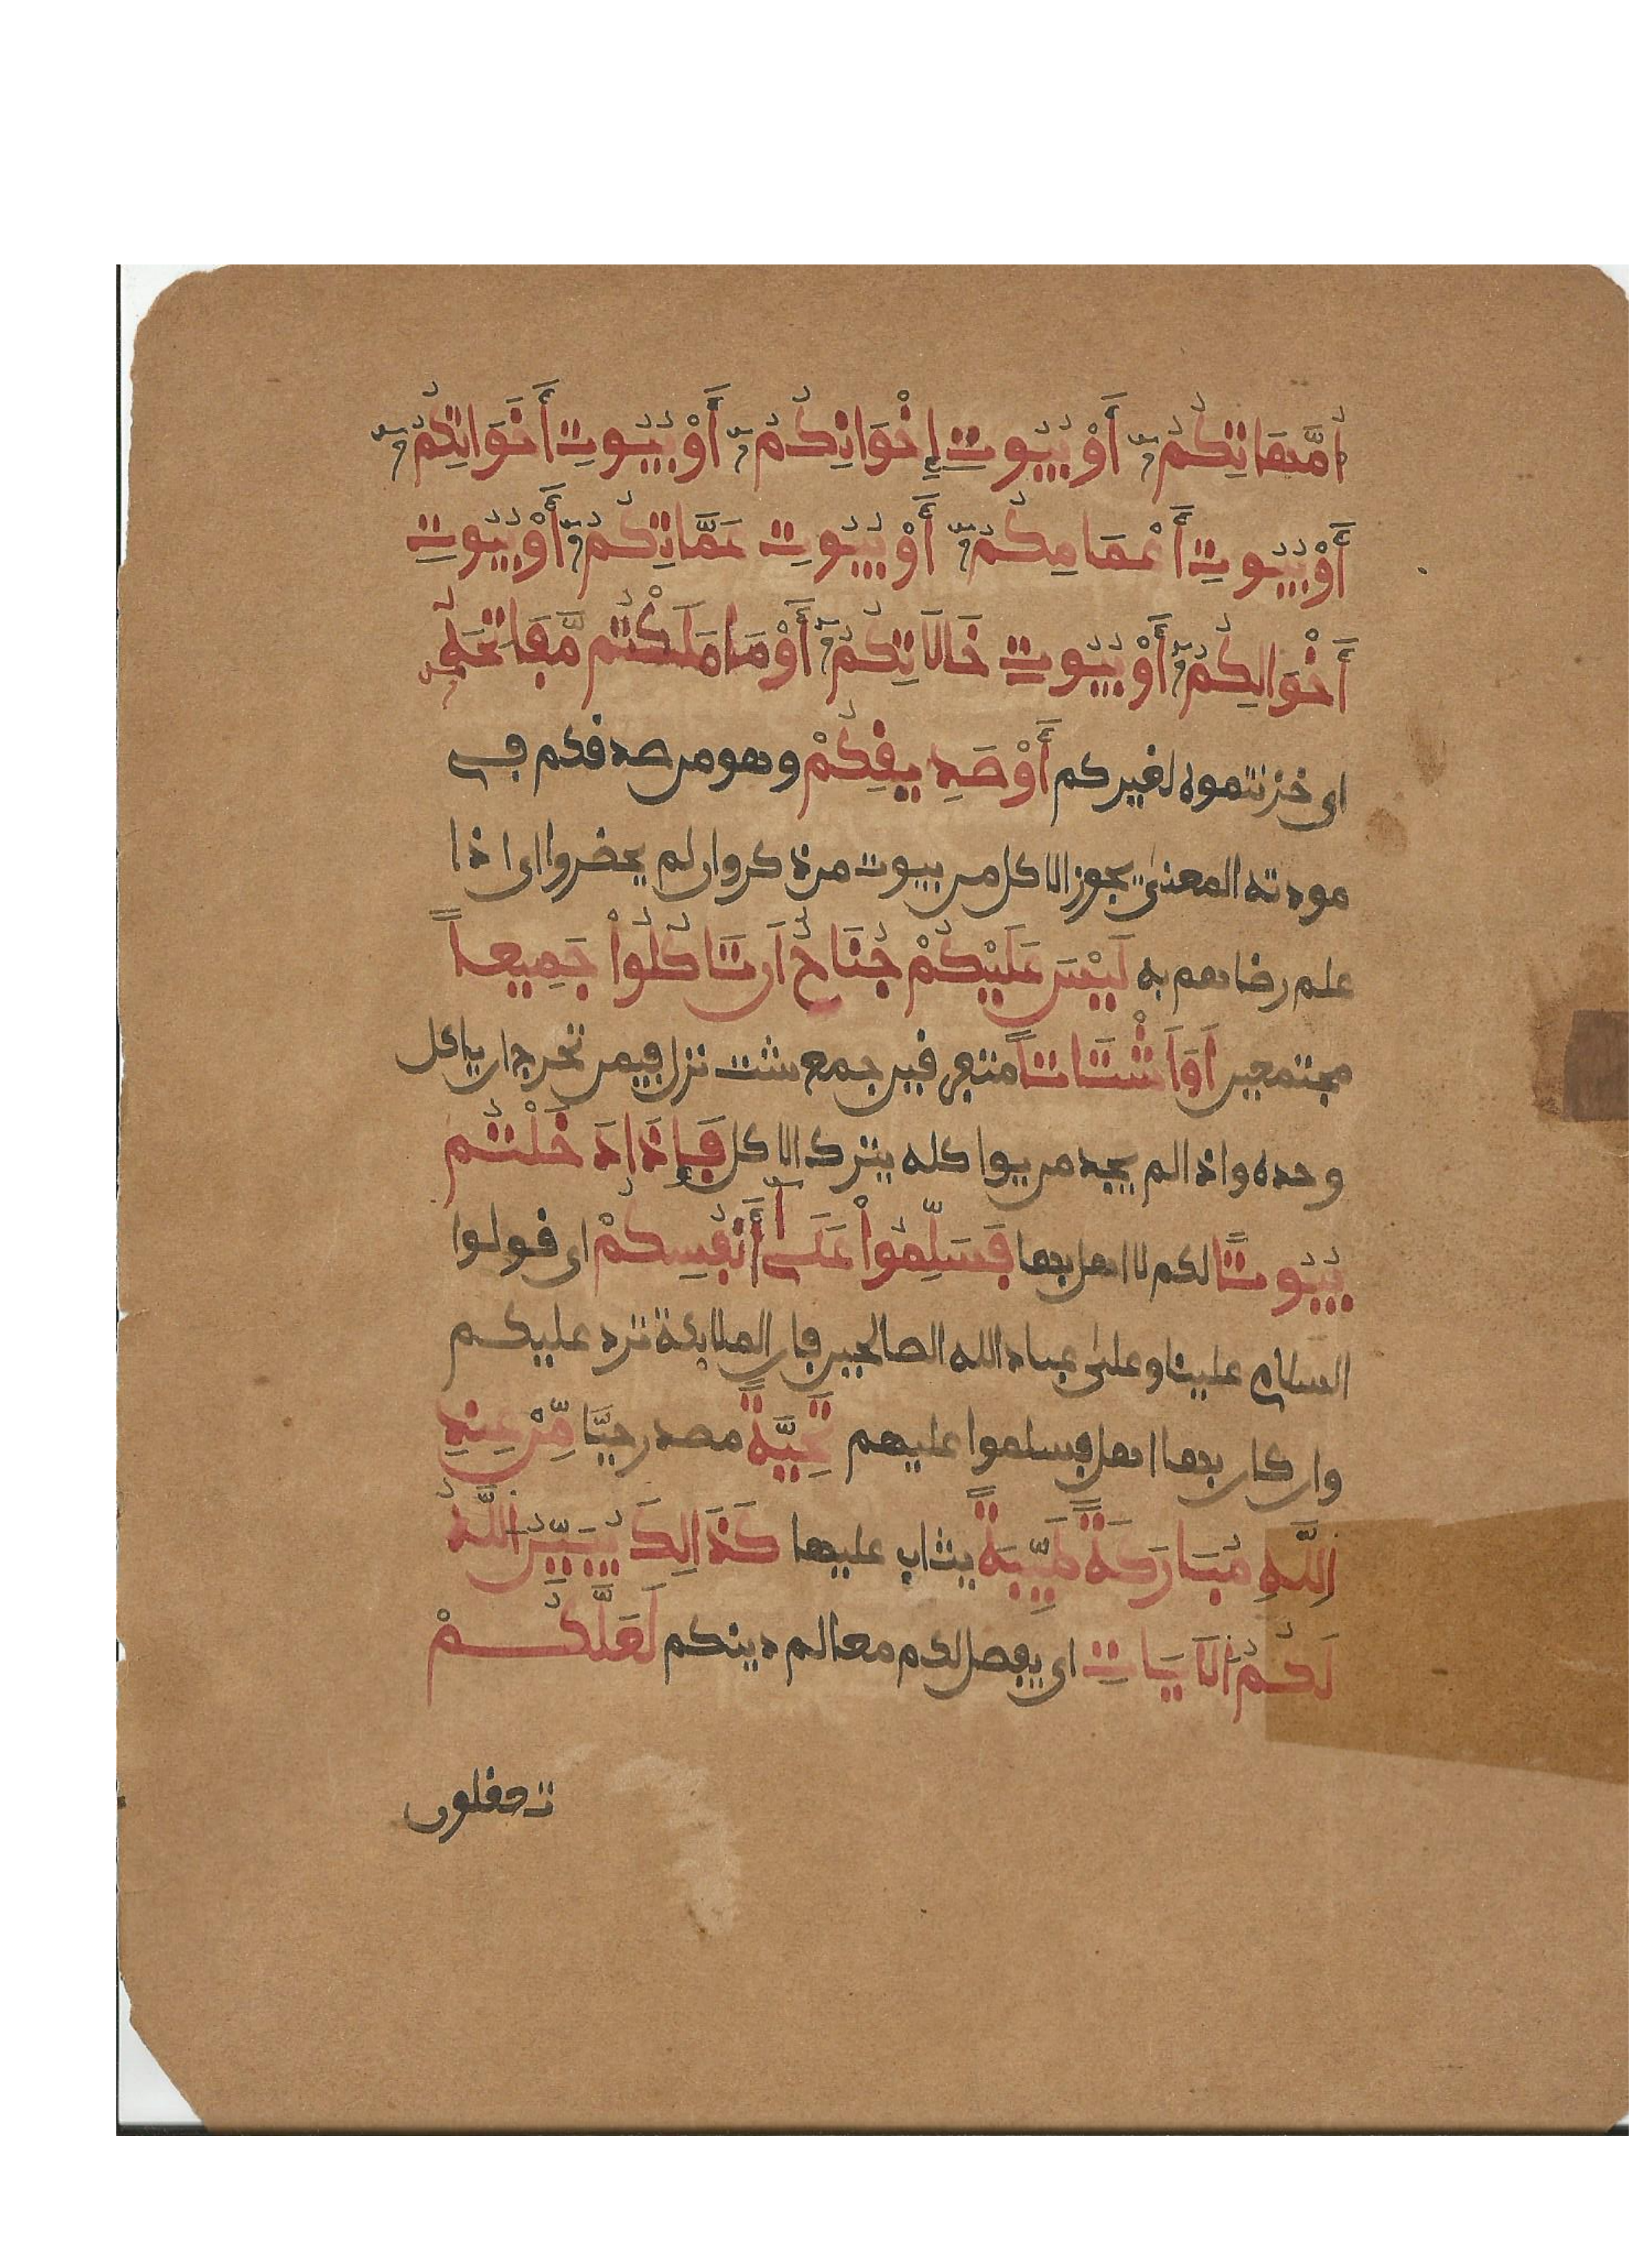 أُمَّهَاتِكُمْ أَوْ بُيُوتِ إِخْوَانِكُمْ أَوْ بُيُوتِ أَخَوَاتِكُمْ
أَوْ بُيُوتِ أَعْمَامِكُمْ أَوْ بُيُوتِ عَمَّاتِكُمْ أَوْ بُيُوتِ
أَخْوَالِكُمْ أَوْ بُيُوتِ خَالَاتِكُمْ أَوْ مَا مَلَكْتُم مَّفَاتِحَهُ
اى خزنتموه لغيركم أَوْ صَدِيقِكُمْ وهو من صدقكم في
مودته المعنىٰ يجوز الاكل من بيوت من ذكر وان لم يحضروا اى اذا
علم رضاهم به لَيْسَ عَلَيْكُمْ جُنَاحٌ اَن تَاكُلُواْ جَمِيعاً
مجتمعين اَوَ اَشْتَاتاً متفرقين جمع شت نزل فيمن تحرج ان ياكل
وحده واذا لم يجد من يواكله يترك الاكل فَإِذَا دَخَلْتُم
بُيُوتاً لكم لا اهل بها فَسَلِّمُواْ عَلَىٰ أَنفُسِكُمْ اى قولوا
السلام علينا وعلىٰ عباد الله الصالحين فان الملائكة ترد عليكم
وان كان بها اهل فسلموا عليهم تَحِيَّةً مصدر حيَّا مِّنْ عِندِ
اللَّهِ مُبَارَكَةً طَيِّبَةً يثاب عليها كَذَالِكَ يُبَيِّنُ اللَّهُ
لَكُمُ الَايَاتِ اى يفصل لكم معالم دينكم لَعَلَّكُمْ
تعقلون